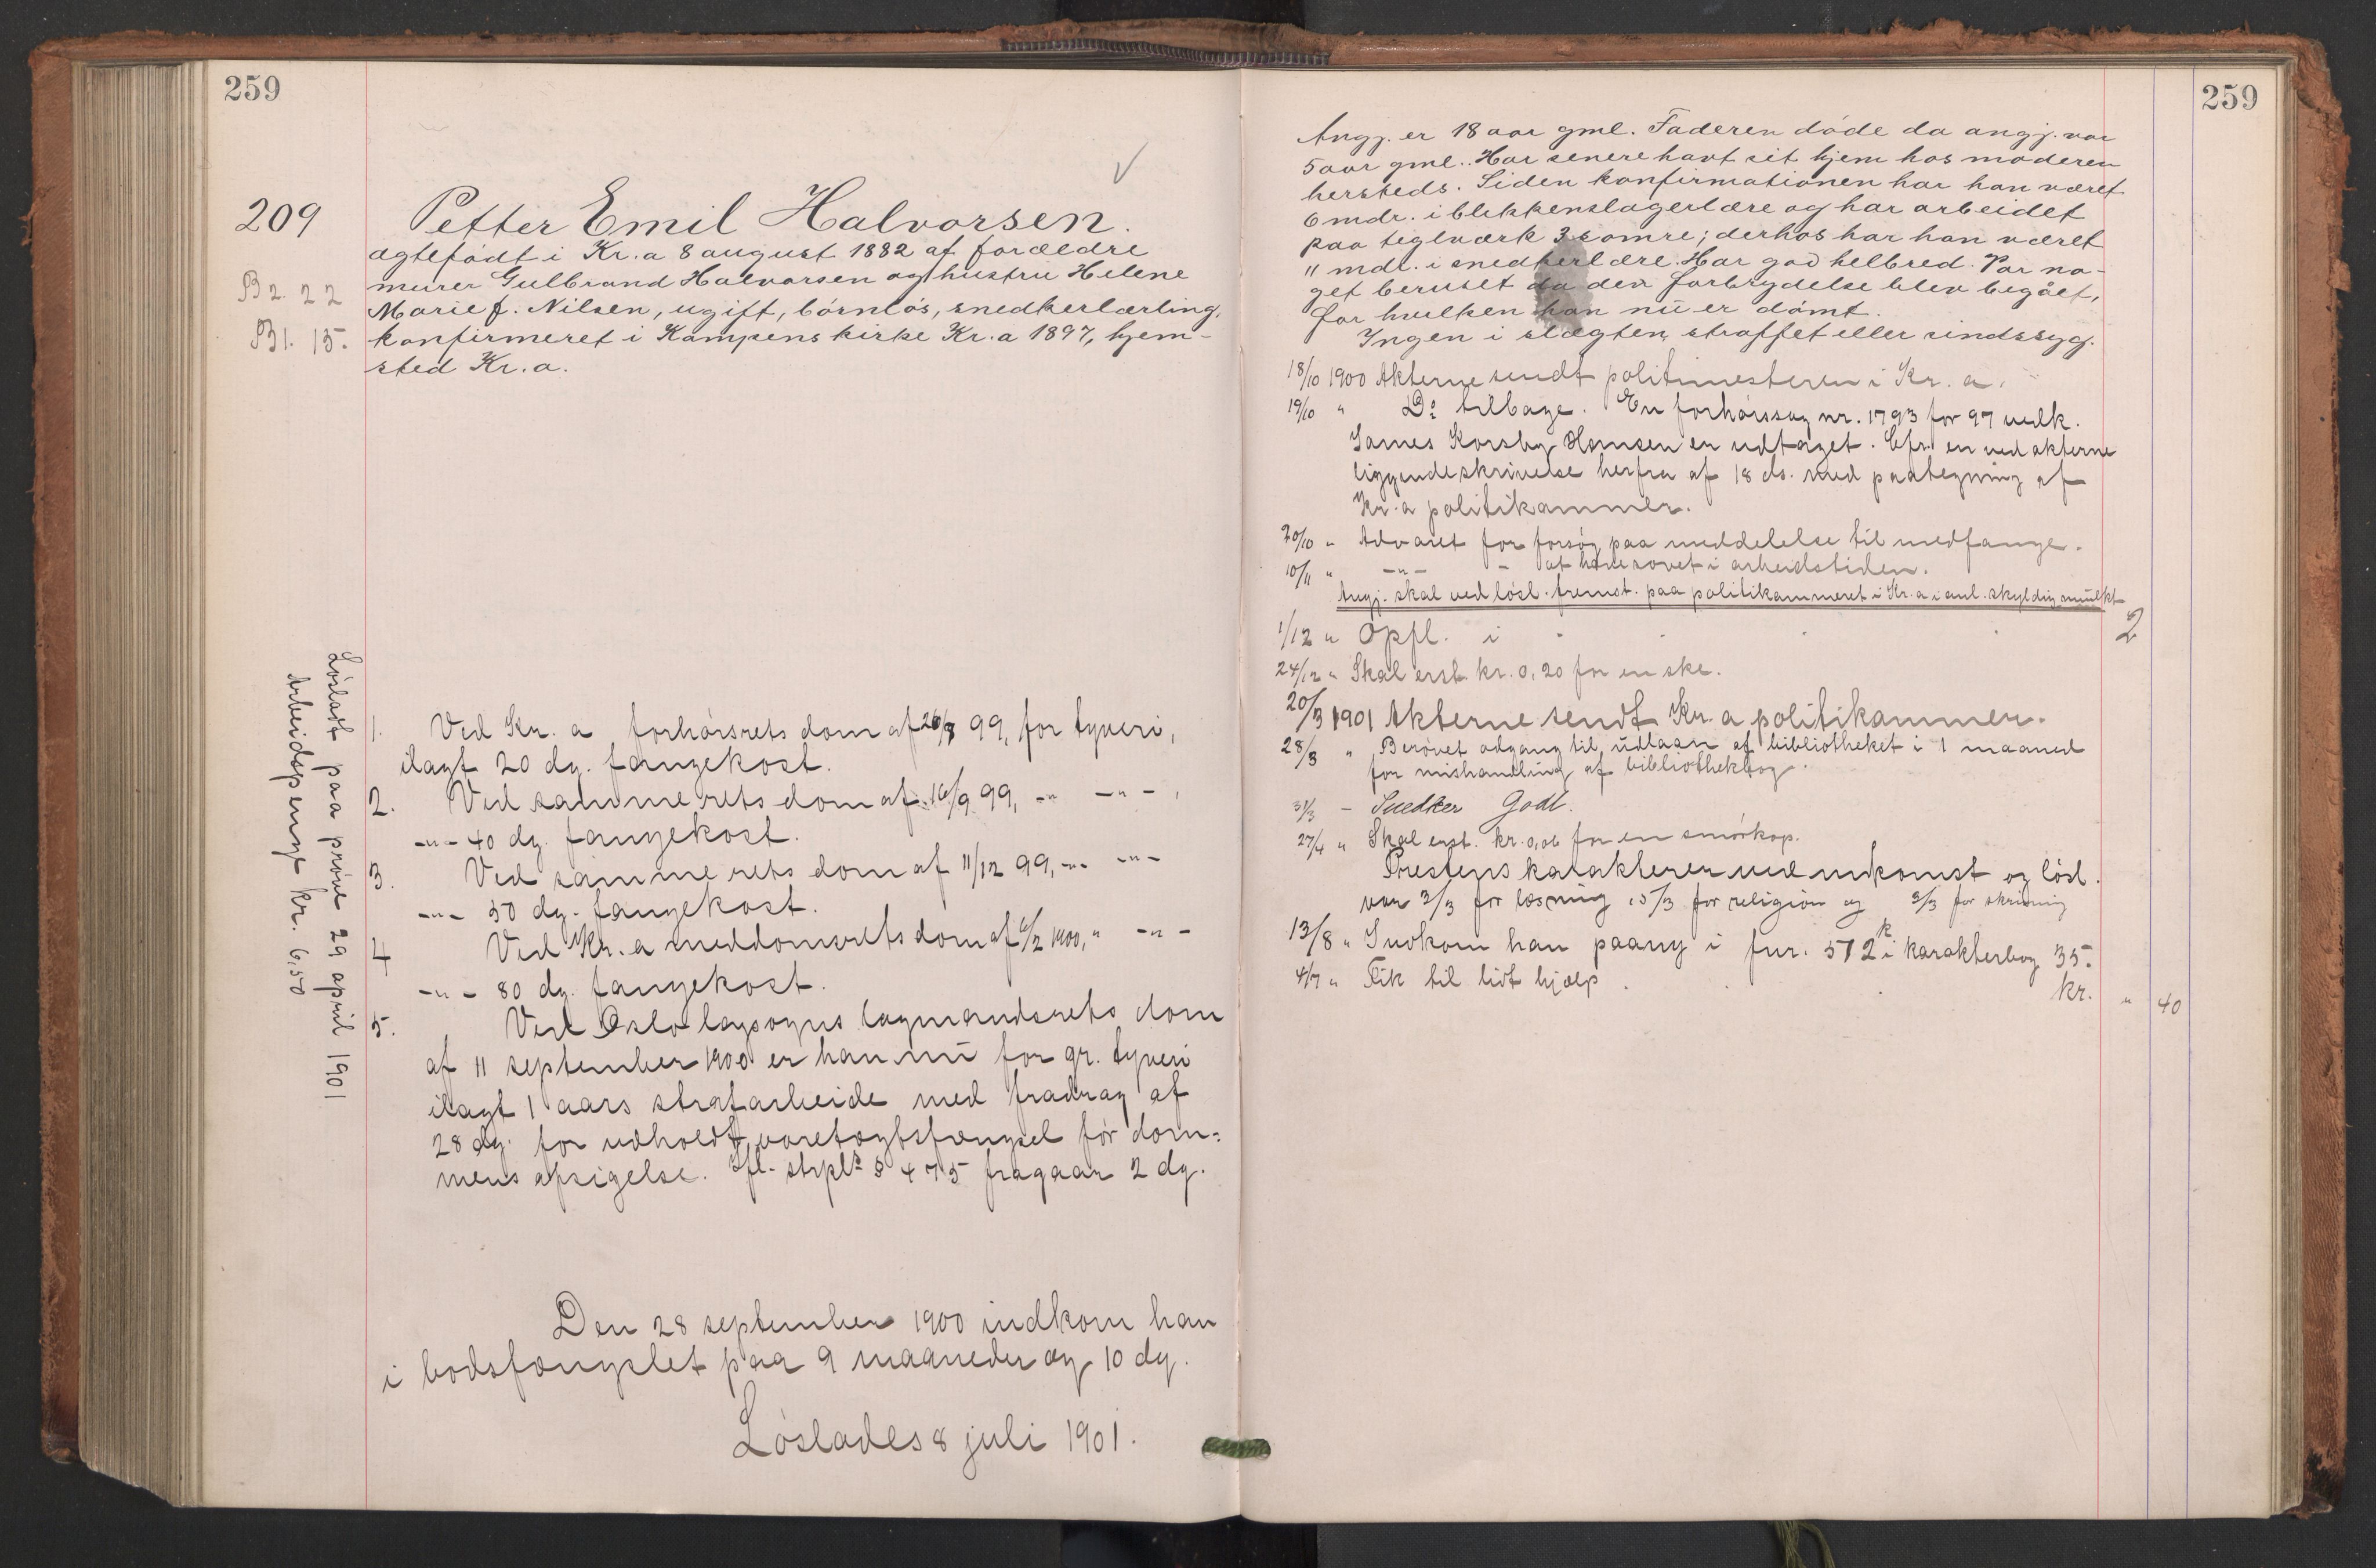 259
209
Petter Emil Halvorsen.
ægtefødt i Kr.a 8 august 1882 af forældre
murer Gulbrand Halvorsen og hustru Helene
Marie f. Nilsen, ugift, børnløs, snedkerlærling,
konfirmeret i Kampens kirke Kr.a 1897, hjem-
sted Kr.a.
B 2. 22
B 1. 15.
Løsladt paa prøve 29 april 1901
Arbeidspenge kr. 6,50
1. Ved Kr.a forhørsrets dom af 99, for tyveri,
ilagt 20 dg. fangekost.
2. Ved samme rets dom af 16/9 99, -"- -"-,
-"- 40 dg. fangekost.
3. Ved samme rets dom af 11/12 99, -"- -"-
-"- 50 dg. fangekost.
4 Ved Kr.a meddomsrets dom af 6/2 1900, " -"-
-"- 80 dg. fangekost.
5. Ved Oslo lagsogns lagmandsrets dom
af 11 september 1900 er han nu for gr. tyveri
ilagt 1 aars strafarbeide med fradrag af
28 dg. for udholdt varetægtsfængsel før dom-
mens afsigelse. Ifl. strpl. § 475 fragaar 2 dg.
Den 28 september 1900 indkom han
i bodsfængslet paa 9 maaneder og 10 dg.
Løslades 8 juli 1901.
259
Angj. er 18 aar gml. Faderen døde da angj. var
5 aar gml. Har senere havt sit hjem hos moderen
hersteds. Siden konfirmationen har han været
6 mdr. i blikkenslagerlære og har arbeidet
paa teglværk 3 somre; derhos har han været
11 mdr. i snedkerlære. Har god helbred. Var no-
get beruset da den forbrydelse blev begået,
for hvilken han nu er dømt.
Ingen i slægten straffet eller sindssyg.
18/10 1900 Akterne sendt politimesteren i Kr.a.
19/10 " Do tilbage. En forhørssag nr. 1793 for 97 vedk.
James Korsby Hansen er udtaget. Cfr. en ved akterne
liggende skrivelse herfra af 18 ds. med paategning af
Kr.a politikammer.
20/10 " Advaret for forsøg paa meddelelse til medfange.
10/11 " -"- - at have sovet i arbeidstiden.
Angj. skal ved løsl. fremst. paa politikammeret i Kr.a i anl. skyldig mulkt
1/12 " Opfl. i 2
24/12 " Skal erst. kr. 0,20 for en ske.
20/3 1901 Akterne sendt Kr.a politikammer.
28/3 " Berøvet adgang til udlaan af bibliotheket i 1 maaned
for mishandling af bibliothekbog.
31/3 - Snedker Godt.
27/4 " Skal erst. kr. 0,06 for en smørkop.
Prestens karakterer ved indkomst og løsl.
var 2/3 for læsning, 5/3 for religion og 2/3 for skrivning
13/8 " Indkom han paany i fnr. 572 i karakterbog 35.
4/7 " Fik til lidt hjælp kr. " 40